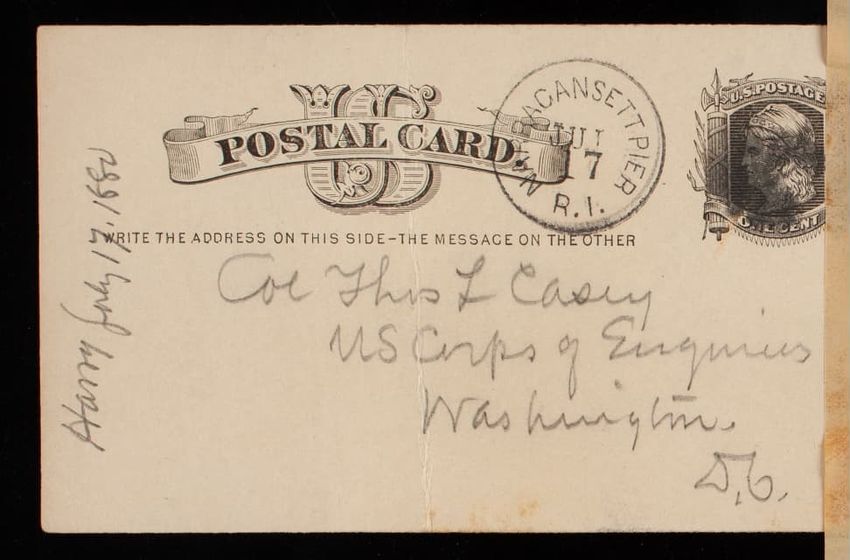 US
POSTAL CARD.
NARRAGANSETT PIER
JUL
17
R.I.
U.S. POSTAGE
ONE CENT
WRITE THE ADDRESS ON THIS SIDE-THE MESSAGE ON THE OTHER
Col Thos L Casey
US Corps of Engineers
Washington.
D.C.
Harry July 17, 1882